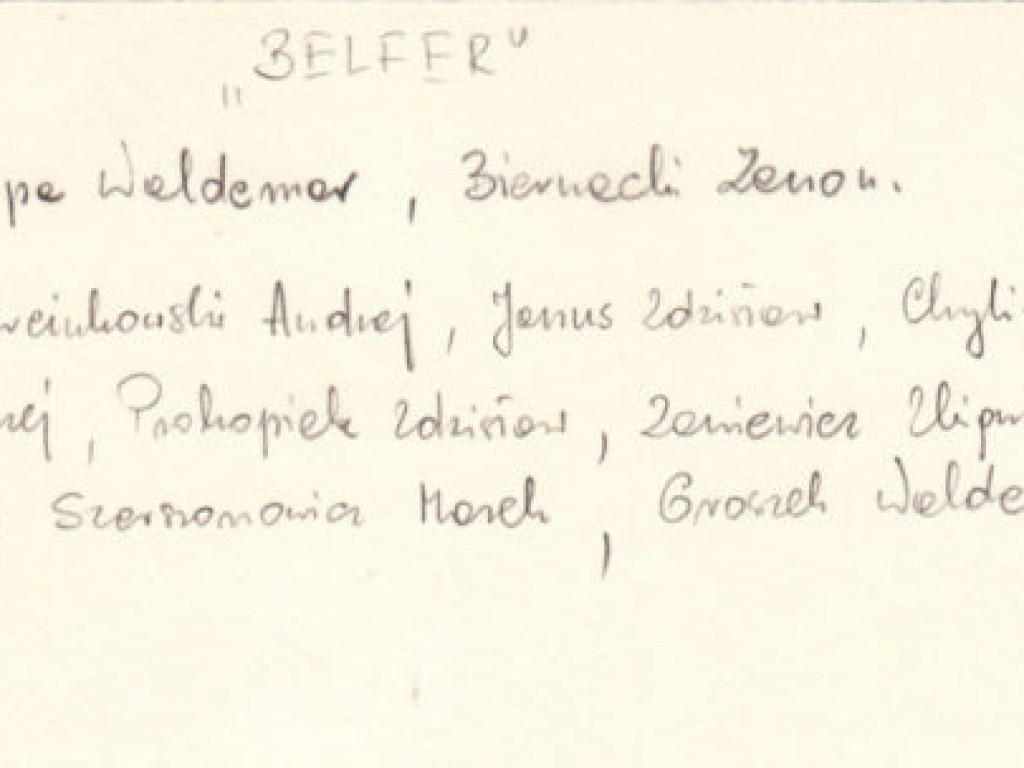 „BELFER"
pa Waldemar, Biernacki Zenon.
Andrzej, Janus Zdzisław, Chyli
zej, Prokopiak Zdzisław, Zaniewicz Zbign
Szerszonowicz Marek, Groszek Walde